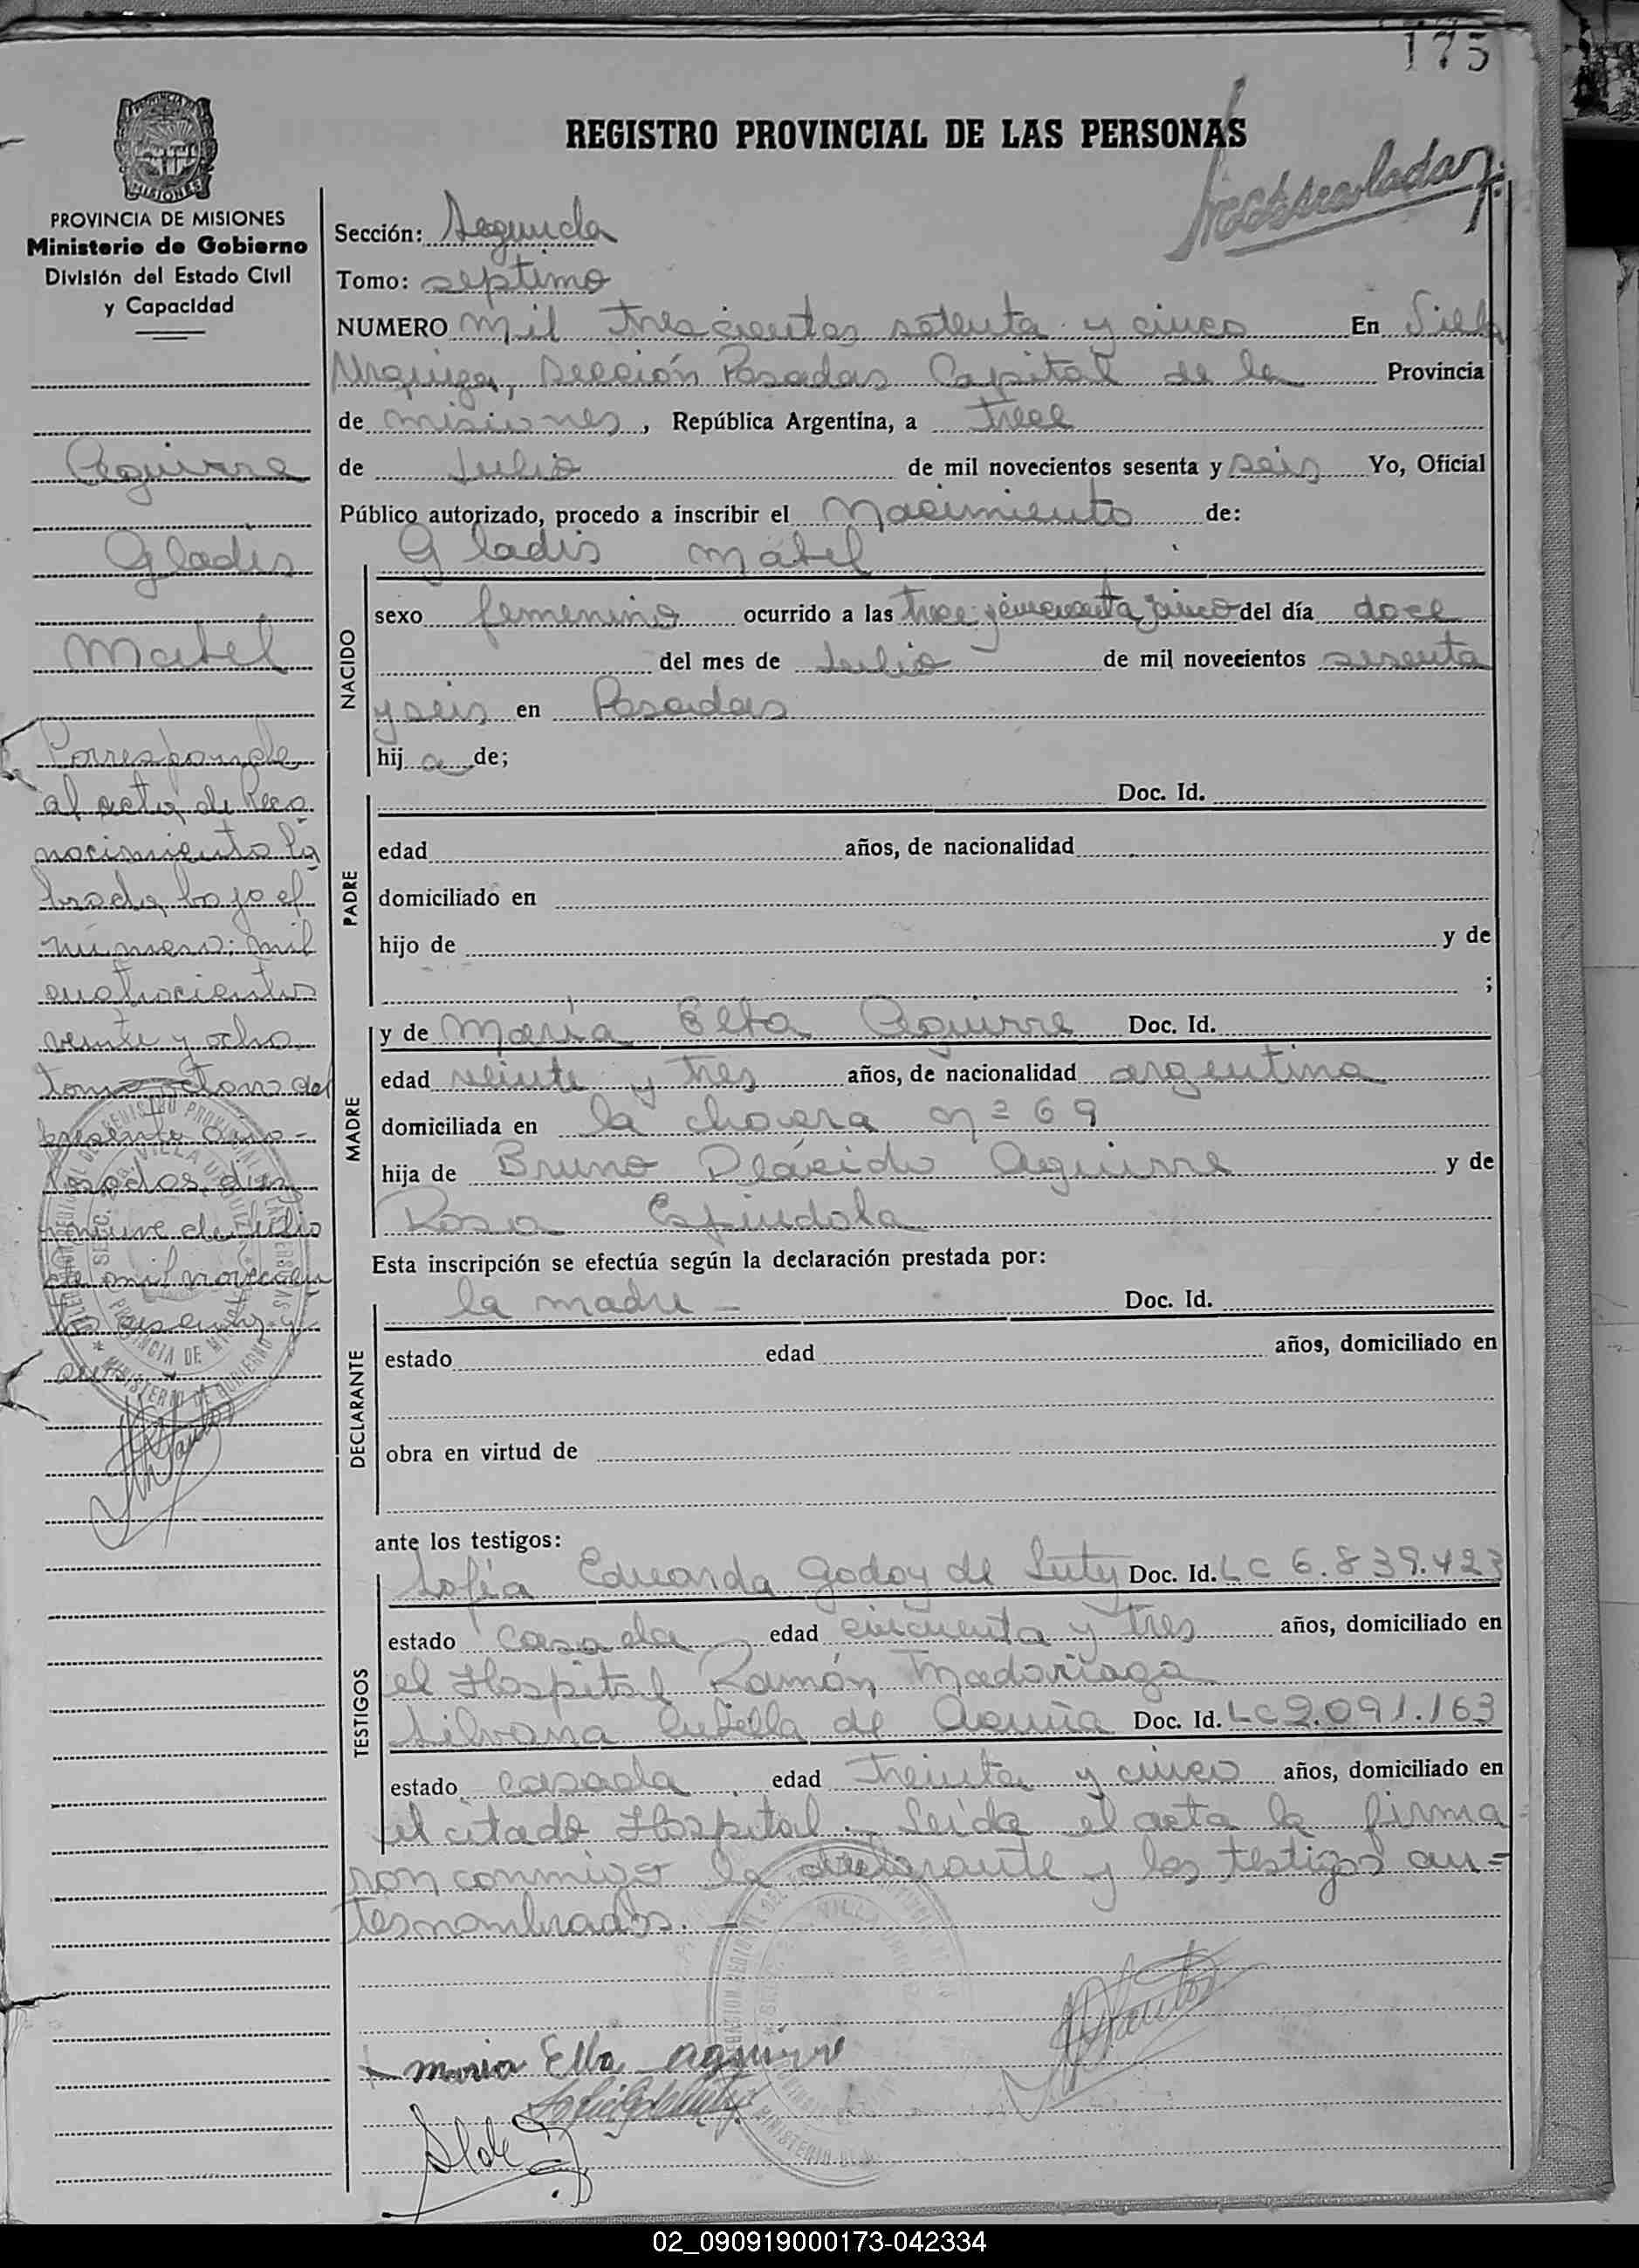 175
REGISTRO PROVINCIAL DE LAS PERSONAS
PROVINCIA DE MISIONES
Ministerio de Gobierno
División del Estado Civil
y Capacidad
Aguirre
Gladis
Mabel
Corresponde
al acta de Reco
nocimiento la
brada bajo el
número: mil
cuatrocientos
veinte y ocho
tomo octavo del
presente año-
Posadas, diez
nueve de Julio
de mil novecien
tos sesenta y
seis
Sección: Segunda
Tomo: septimo
NUMERO mil trescientos setenta y cinco En Villa
Urquiza, Sección Posadas Capital de la Provincia
de misiones, República Argentina, a trece
de Julio de mil novecientos sesenta y seis Yo, Oficial
Público autorizado, procedo a inscribir el Nacimiento de:
Gladis Mabel
NACIDO
sexo femenino ocurrido a las trece y cincuenta y cinco del día doce
del mes de Julio de mil novecientos sesenta
y seis en Posadas
hija de;
PADRE
Doc. Id.
edad años, de nacionalidad
domiciliado en
hijo de y de
;
MADRE
y de María Elba Aguirre Doc. Id.
edad veinte y tres años, de nacionalidad argentina
domiciliada en la chacra nº 69
hija de Bruno Plácido Aguirre y de
Rosa Espíndola
Esta inscripción se efectúa según la declaración prestada por:
DECLARANTE
la madre - Doc. Id.
estado edad años, domiciliado en
obra en virtud de
ante los testigos:
TESTIGOS
Sofía Eduarda Godoy de Doc. Id. LC 6.839.423
estado casada edad cincuenta y tres años, domiciliado en
el Hospital Ramón Madariaga
Silvana de Acuña Doc. Id. LC 2.091.163
estado casada edad treinta y cinco años, domiciliado en
el citado Hospital.- Leída el acta la firma
ron conmigo la declarante y los testigos an=
tesnombrados.-
Maria Elba Aguirre
02_090919000173-042334